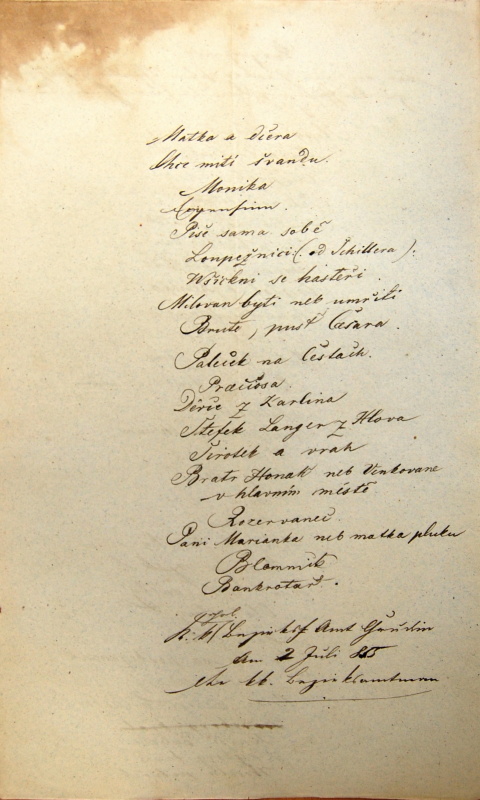 Matka a dcera
Chce míti švandu.
Monika
Píše sama sobě
Loupežníci (od Schillera).
Wšickni se hašteří.
Milovan býti neb umříti
Brute, pusť Césara.
Paleček na Cestách.
Preciosa.
Děvče z Karlína
Štefek Langer z Hlova
Sirotek a vrah
Bratr Honák neb Venkované
v hlavním městě
Rozervanec.
Paní Marianka neb matka pluku
Blomník
Bankrotář.
Amt
Am 2 Juli 855